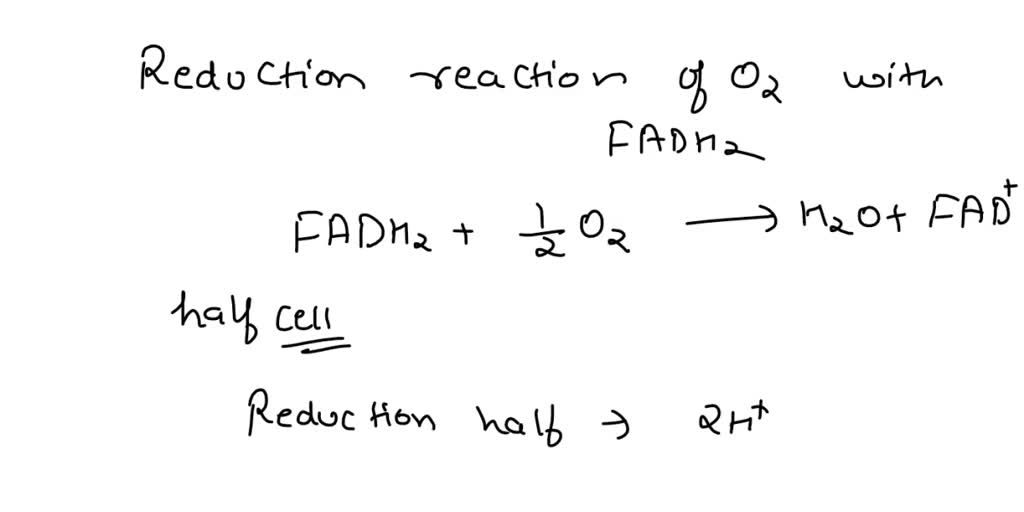 Reduction reaction of O₂ with
FADH₂
FADH₂ + 1/2 O₂ → H₂O + FAD⁺
half cell
Reduction half → 2H⁺